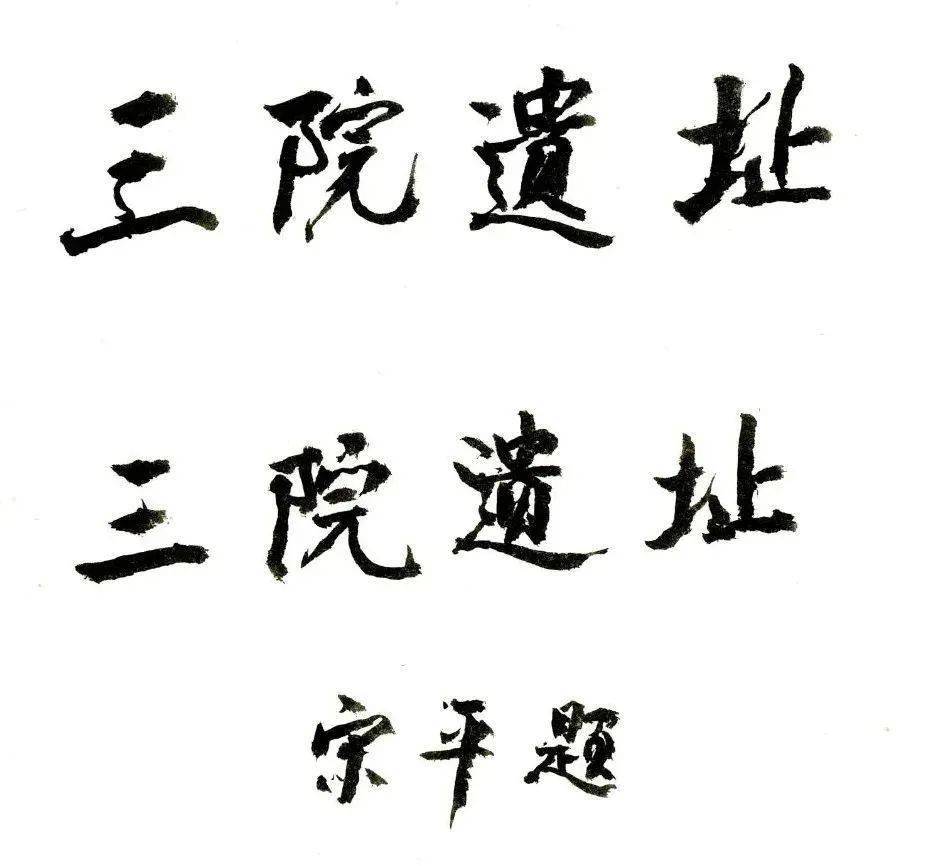 三院遺址
三院遺址
宋平题